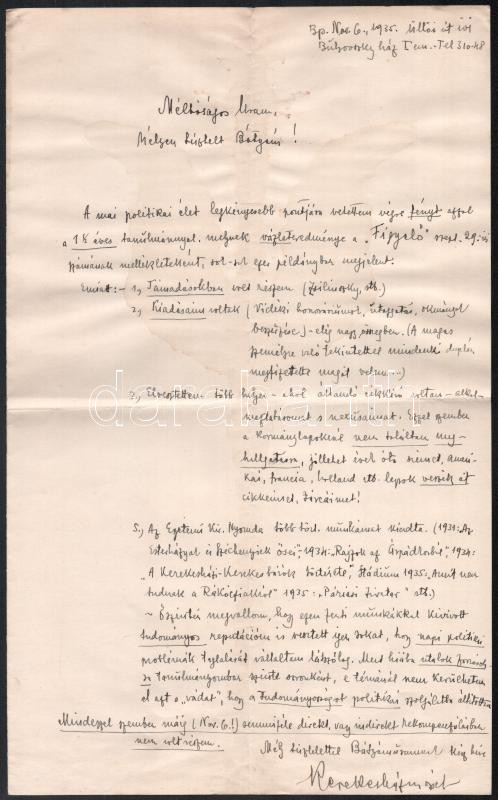 Bp. Nov. 6., 1935. Üllői út
ház I em. - Tel 310-48
Méltóságos Uram,
Mélyen tisztelt Bátyám!
A mai politikai élet legkényesebb pontjára vetettem végre fényt azzal
a 1½ éves tanulmánnyal, melynek vázleteredménye a „Figyelő" szept. 29-iki
számának mellékleteként, egyes példányban megjelent:
Emiatt: - 1, Támadásokban volt részem (Zsilinszky, stb.)
2, Kiadásaim voltak (Vidéki honoráriumok, utazgatás, okmányok
beszerzése) - elég nagy összegben. (A magas
személyre való tekintettel mindenki duplán
megfizettette magát velem...)
3, Elvesztettem több helyen - ahol állandó cikkíró voltam - alkal-
maztatásomat
a kormánylapoknál nem találtam meg-
hallgatásra, jóllehet évek óta német, ameri-
kai, francia, holland stb. lapok veszik át
cikkeimet,
5.) Az Egyetemi Kir. Nyomda több tört. munkámat kiadta. (1931: „Az
Esterházyak és Széchenyiek ősei", 1934: „Rajzok az Árpádkorból", 1934:
„A Kerekesházi-Kerekes bárók története", Stádium 1935: „Amit nem
tudnak a Rákócziakról" 1935: „Párizsi Zivatar" stb.)
- Őszintén megvallom, hogy ezen fenti munkákkal kivívott
tudományos reputációm is vesztett igen sokat, hogy napi politikai
problémák taglalását vállaltam látszólag. Mert hiába utalok
tanulmányomban szinte soronként, e témánál nem kerülhetem
el azt a „vádat", hogy a tudományosságot politikai szolgálatba állítottam
Mindezzel szemben máig (Nov. 6.!) semmiféle direkt, vagy indirekt rekompenzálásban
nem volt részem.
Mély tisztelettel Bátyáméknak kéz
Kerekesházy József
darabanth